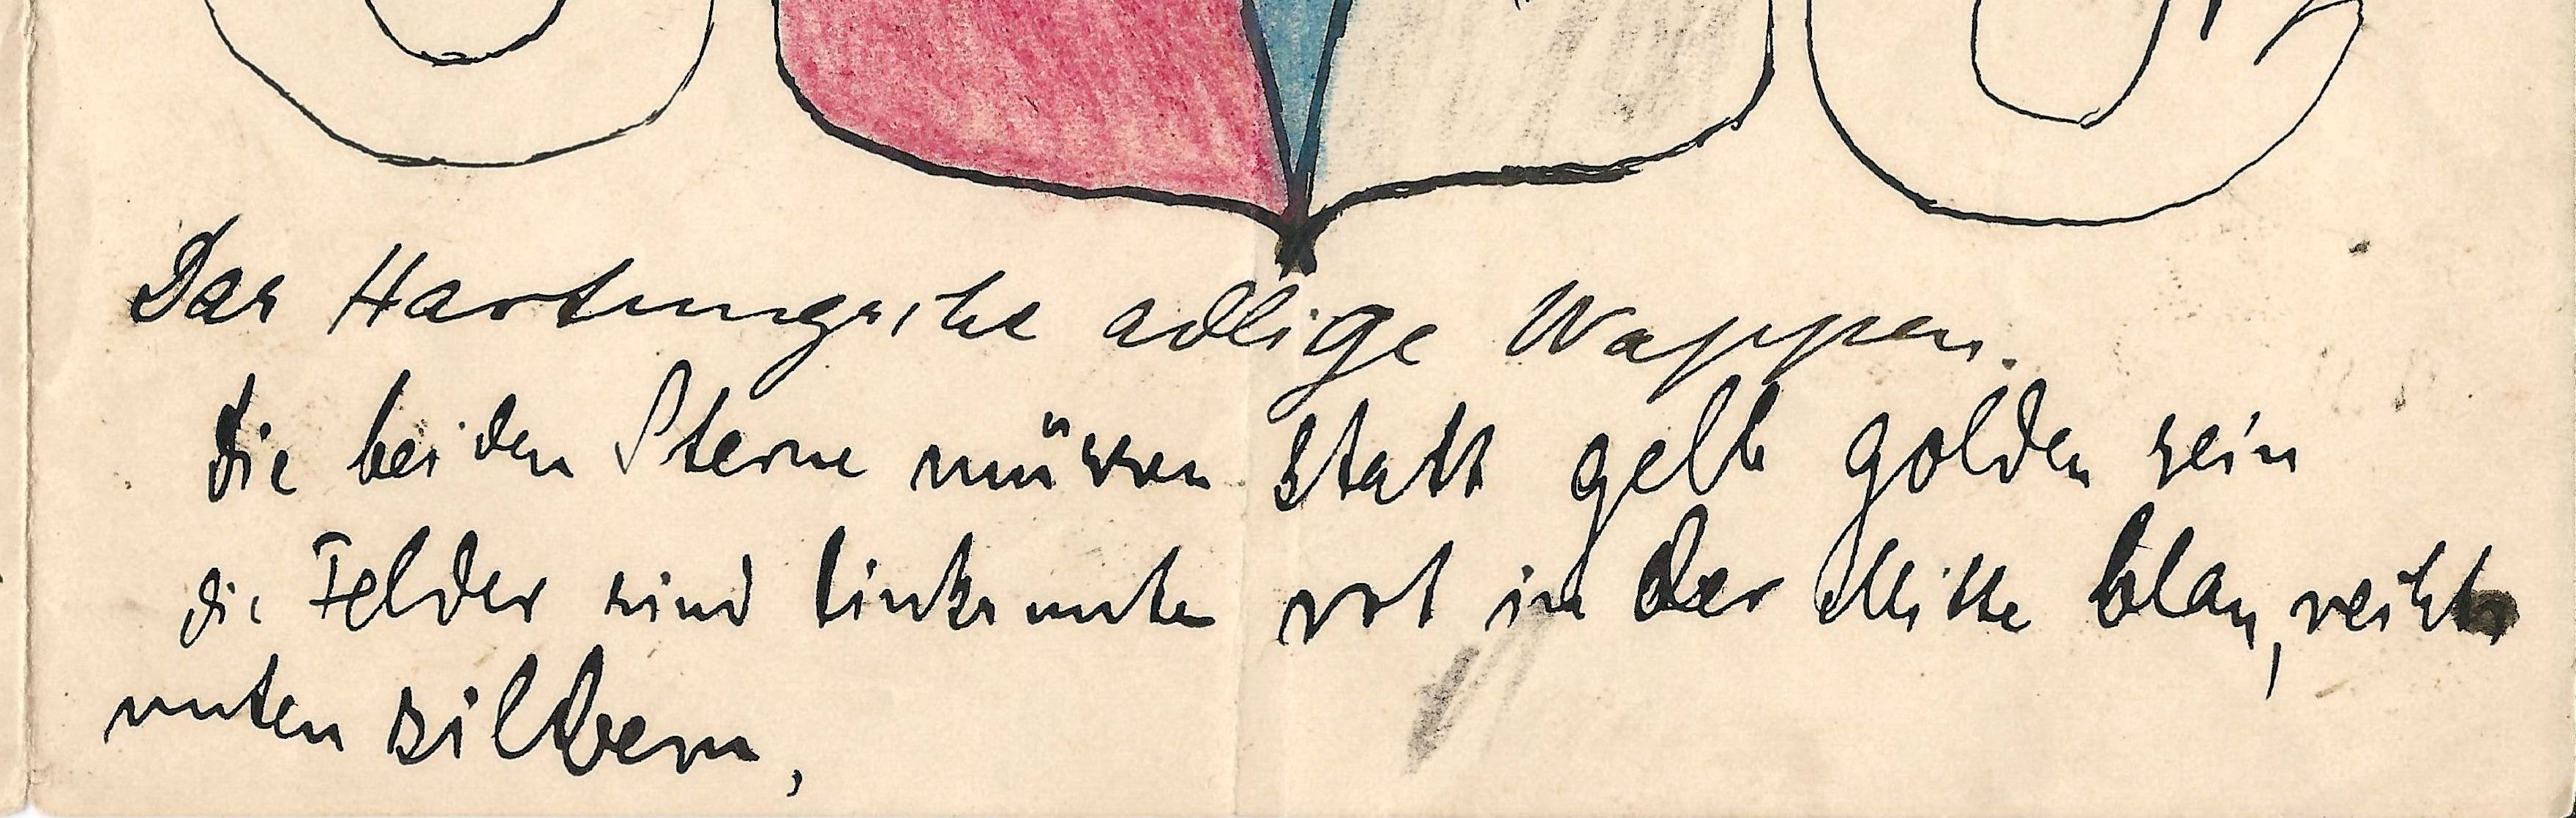 Das Hartungsche adlige Wappen.
die beiden Sterne müssen statt gelb golden sein
die Felder sind links unten rot in der Mitte blau, rechts
unten silbern,